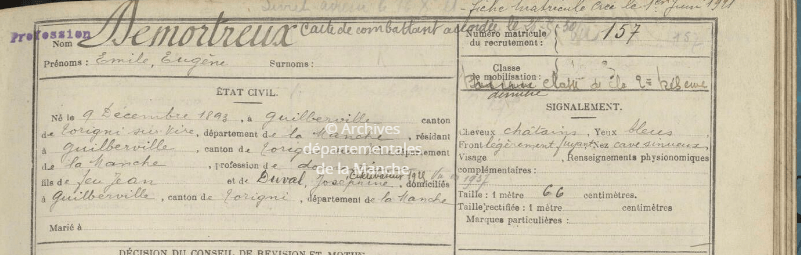 Fiche matricule créée le 1er Juin 1921
Profession
Nom Demortreux Carte de combattant accordée le
Prénoms : Emile, Eugène Surnoms :
Numéro matricule
du recrutement : 157
ÉTAT CIVIL.
Né le 9 Décembre 1893, à Guilberville canton
de Torigni sur Vire, département de la Manche, résidant
à Guilberville, canton de Torigni département
de la Manche, profession de
Cultivateur
fils de feu Jean et de Duval, Joséphine, domiciliés
à Guilberville, canton de Torigni, département de la Manche
Marié à
Classe
de mobilisation :
classe de
dernière
SIGNALEMENT.
Cheveux châtains, Yeux bleus
Front légèrement fuyant Nez cave sinueux
Visage , Renseignements physionomiques
complémentaires :
Taille : 1 mètre 66 centimètres.
Taille rectifiée : 1 mètre centimètres
Marques particulières :
DÉCISION DU CONSEIL DE RÉVISION ET MOTIFS
© Archives
départementales
de la Manche